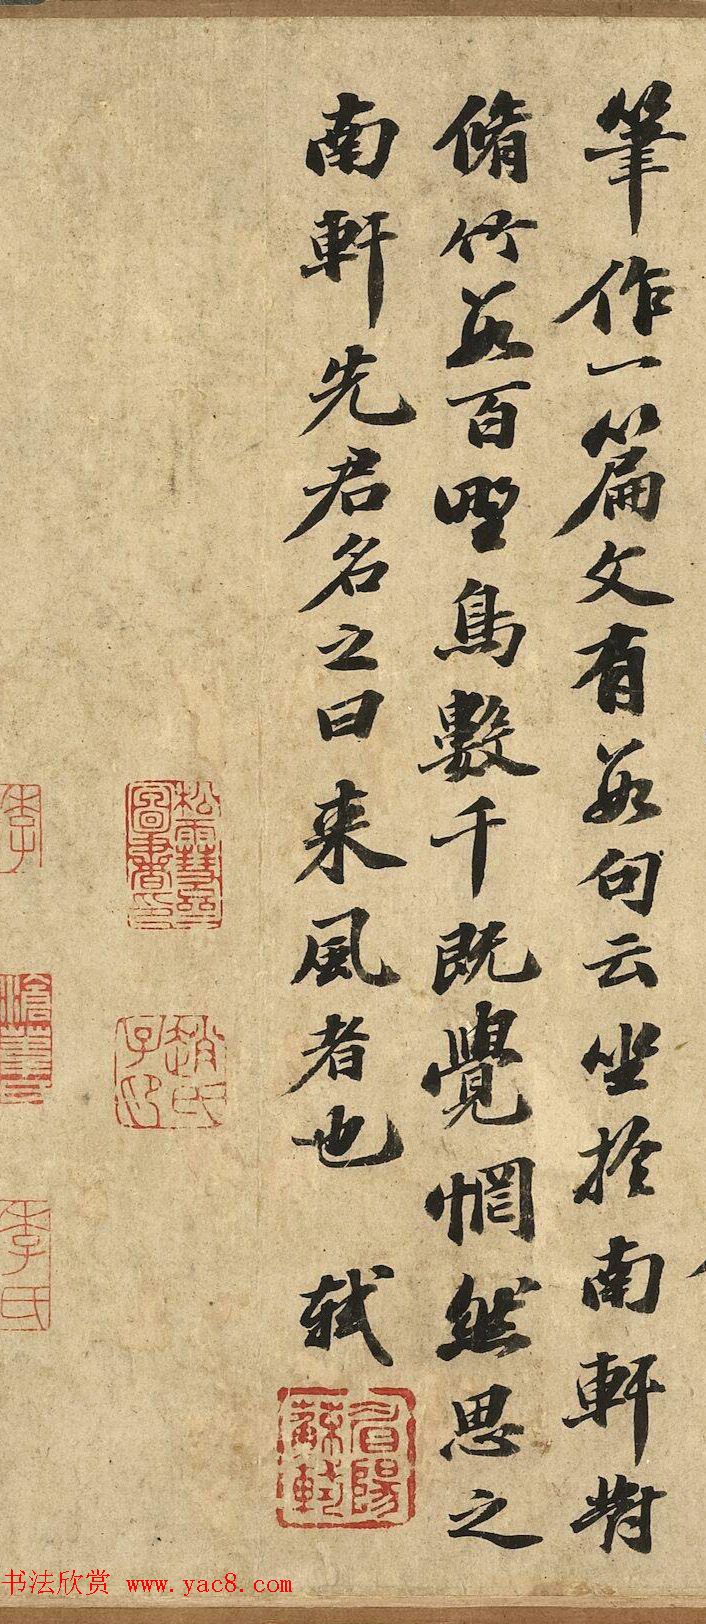 筆作一篇文有數句云坐於南軒對
脩竹數百野鳥數千既覺惘然思之
南軒先君名之曰来風者也 軾
眉陽蘇軾
松雪齋圖書印
趙氏子印
李氏
书法欣赏 www.yac8.com